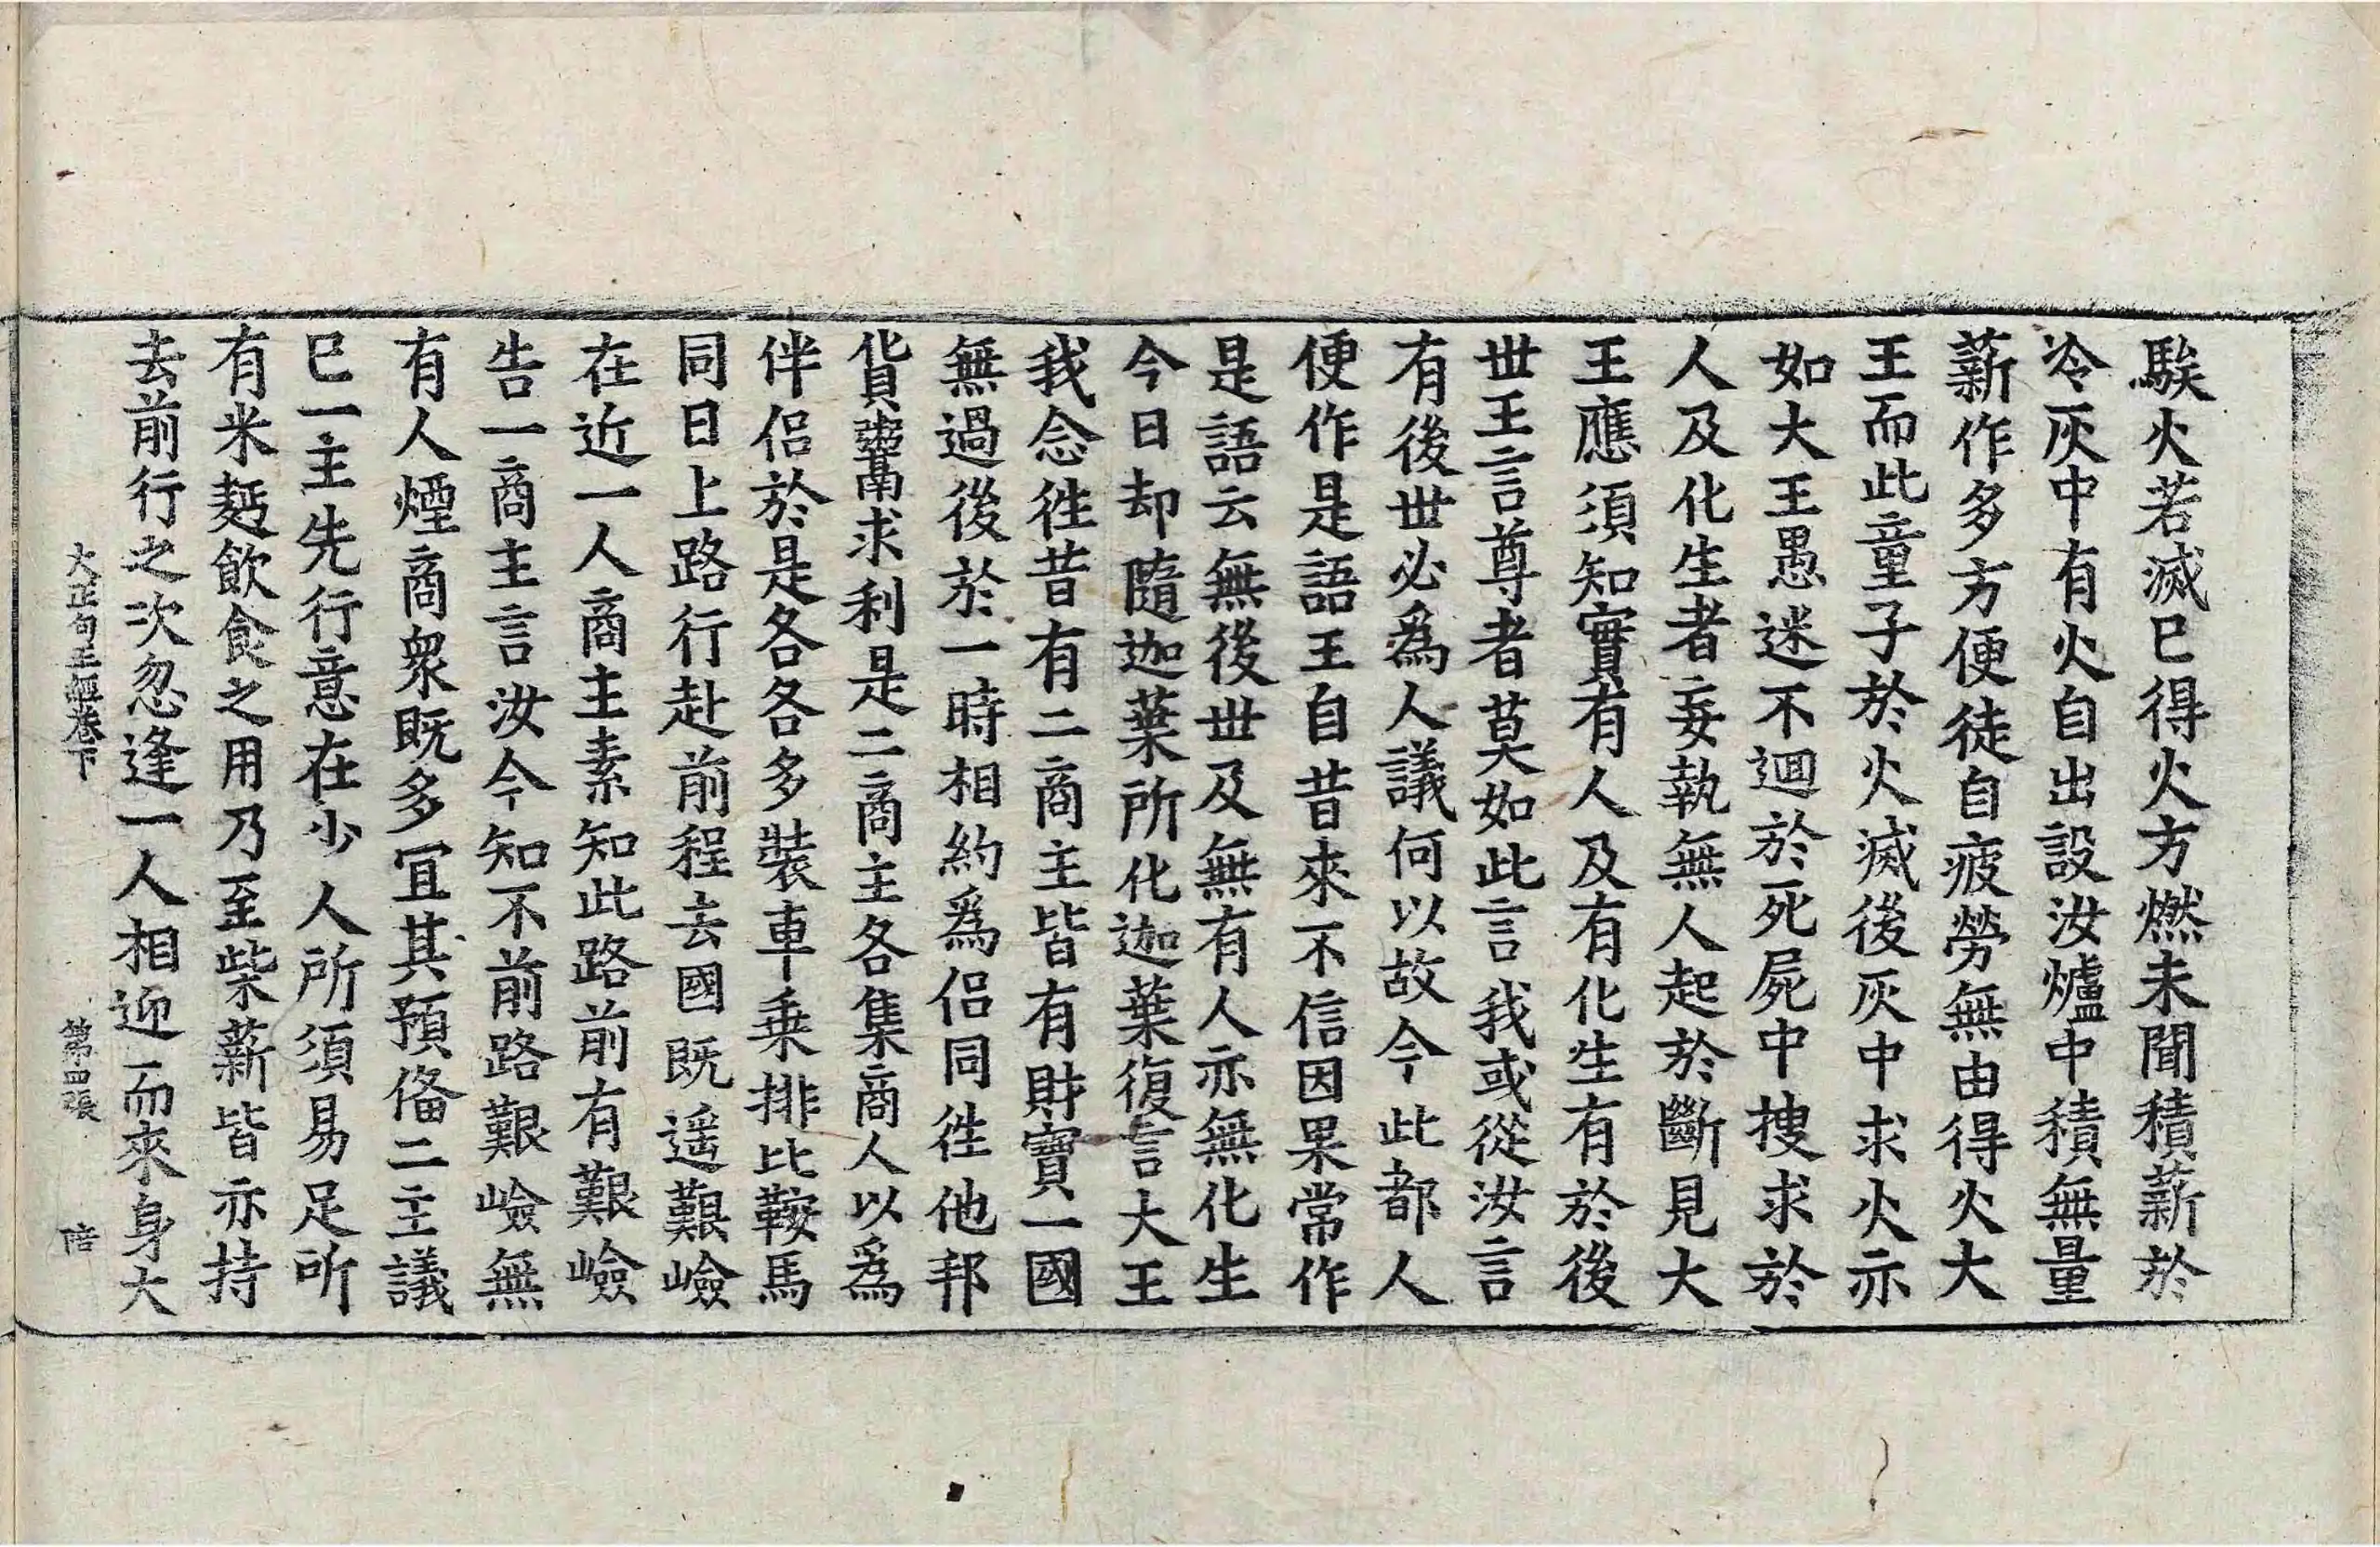 騃火若滅已得火方燃未聞積薪於
冷灰中有火自出設汝爐中積無量
薪作多方便徒自疲勞無由得火大
王而此童子於火滅後灰中求火亦
如大王愚迷不迴於死屍中搜求於
人及化生者妄執無人起於斷見大
王應須知實有人及有化生有於後
世王言尊者莫如此言我或從汝言
有後世必爲人議何以故今此都人
便作是語王自昔來不信因果常作
是語云無後世及無有人亦無化生
今日却隨迦葉所化迦葉復言大王
我念徃昔有二商主皆有財寶一國
無過後於一時相約爲侶同徃他邦
貨鬻求利是二商主各集商人以爲
伴侶於是各各多裝車乗排比鞍馬
同日上路行赴前程去國既遥艱嶮
在近一人商主素知此路前有艱嶮
告一商主言汝今知不前路艱嶮無
有人煙商衆既多冝其預俻二主議
已一主先行意在少人所須易足所
有米麪飲食之用乃至柴薪皆亦持
去前行之次忽逢一人相迎而來身大
大正句王經卷下 第四張 陪